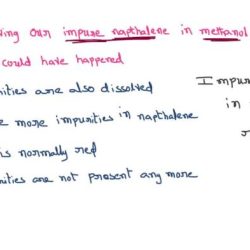 ing our impure napthalene in methanol
could have happened
ities are also dissolved
e more impurities in napthalene
is normally red
ities are not present any more
Impur
in